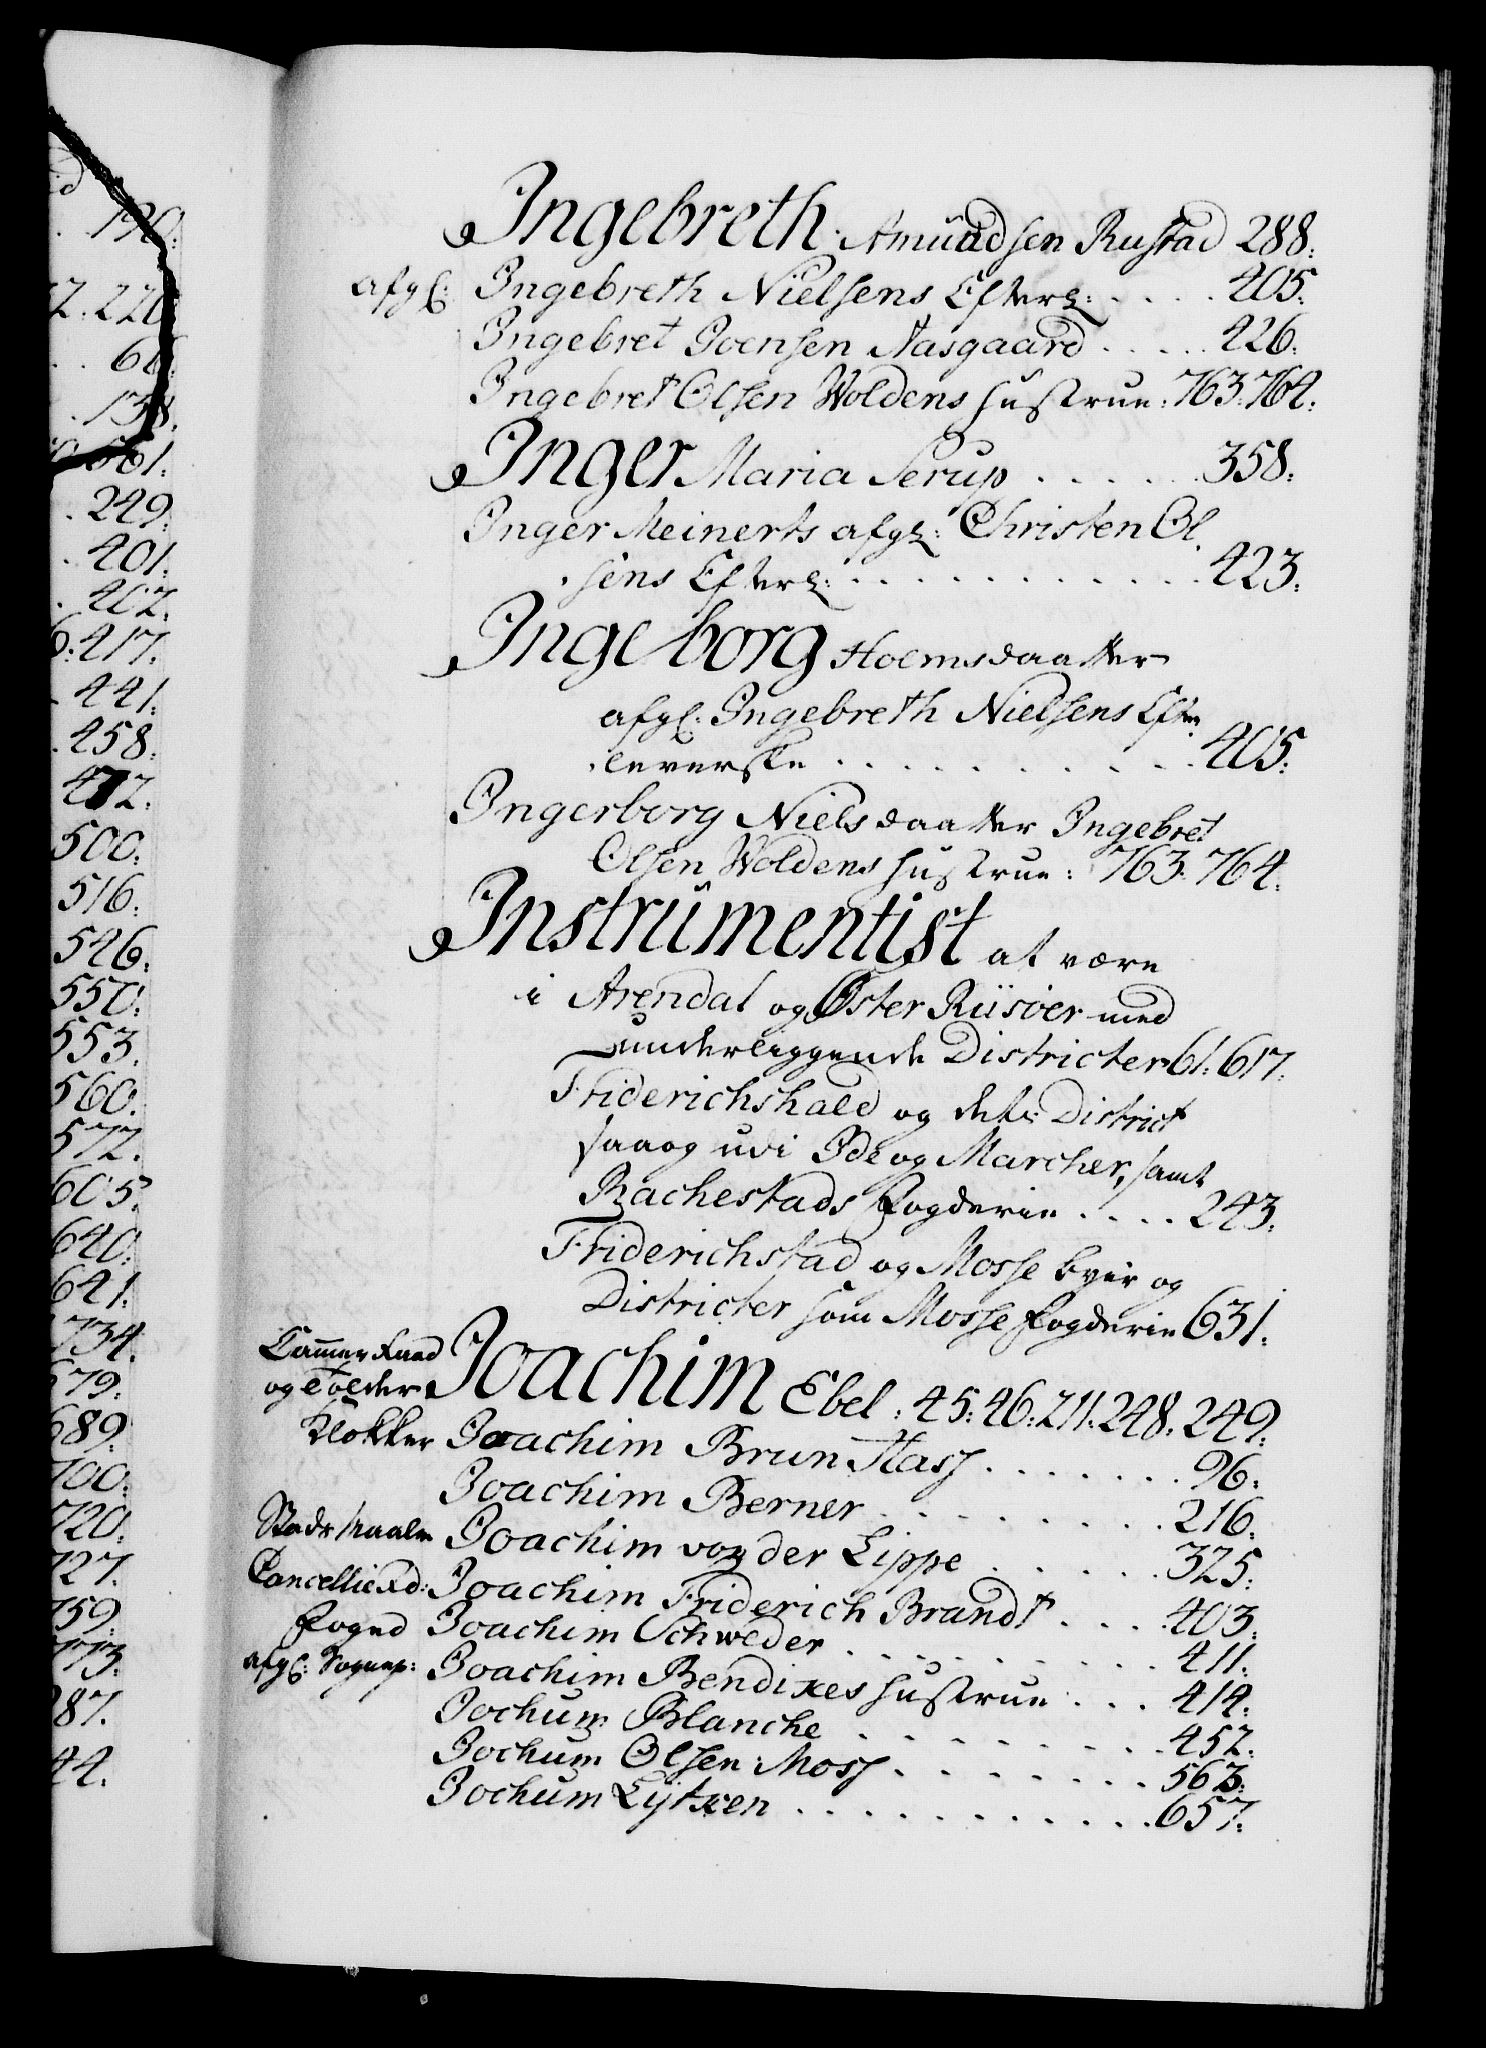 190:
2. 220
66
138.
561.
249.
401.
402.
6: 417.
441.
458.
472.
500.
516.
546.
550.
553.
560.
572.
605.
640.
641.
734.
679.
689.
700.
720.
727.
759.
773.
787.
44.
Ingebreth Amundsen Rustad 288:
afgl: Ingebreth Nielsens Efterl: . . . . 405:
Ingebret Joensen Aasgaard . . . . . 426:
Ingebret Olsen Woldens Hustrue: 763: 764:
Inger Maria Serup . . . . . . 358:
Inger Meinerts afgl: Christen Ol
sens Efterl: . . . . . . . . . . . . 423:
Ingeborg Holmsdaatter
afgl: Ingebreth Nielsens Efter
leverske . . . . . . . . . . . 405:
Ingerborg Nielsdaatter Ingebret
Olsen Woldens Hustrue: 763. 764.
Instrumentist at være
i Arendal og Øster Riisøer med
underliggende Districter 61: 617:
Friderichshald og dets District
saa og udi Ide og Marcher, samt
Rachestads Fogderie . . . . 243.
Friderichstad og Mosse byer og
Districter som Mosse Fogderie 631.
Cammer Raad
og Tolder Joachim Ebel : 45: 46: 211: 248. 249:
Klokker Joachim Brun Hass . . . . . . . 96:
Joachim Berner . . . . . . . . . 216.
Joachim von der Lippe . . . . . . 325.
Cancellie Rd: Joachim Friderich Brandt . . . . 403:
Foged Joachim Schweder . . . . . . . . . 411:
afgl: Sognep: Joachim Bendixes Hustrue . . . 414:
Jochum Blanche . . . . . . . . . 452:
Jochum Olsen Moss . . . . . . . . 563:
Jochum Lytken . . . . . . . . . . . 657.